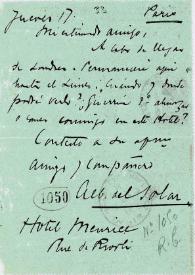 Jueves 17. 22 Paris
Mi estimado amigo,
Acabo de llegar
de Londres. Permaneceré aqui
hasta el Lunes. ¿Cuando y donde
podré verlo? ¿Querria Vd. almorzar
o comer conmigo en este Hotel?
Contesto a su
amigo y Compañero
1050 Alb. del Solar
Hotel Meurice
Rue de Rivoli
Nº 1050
R. C.